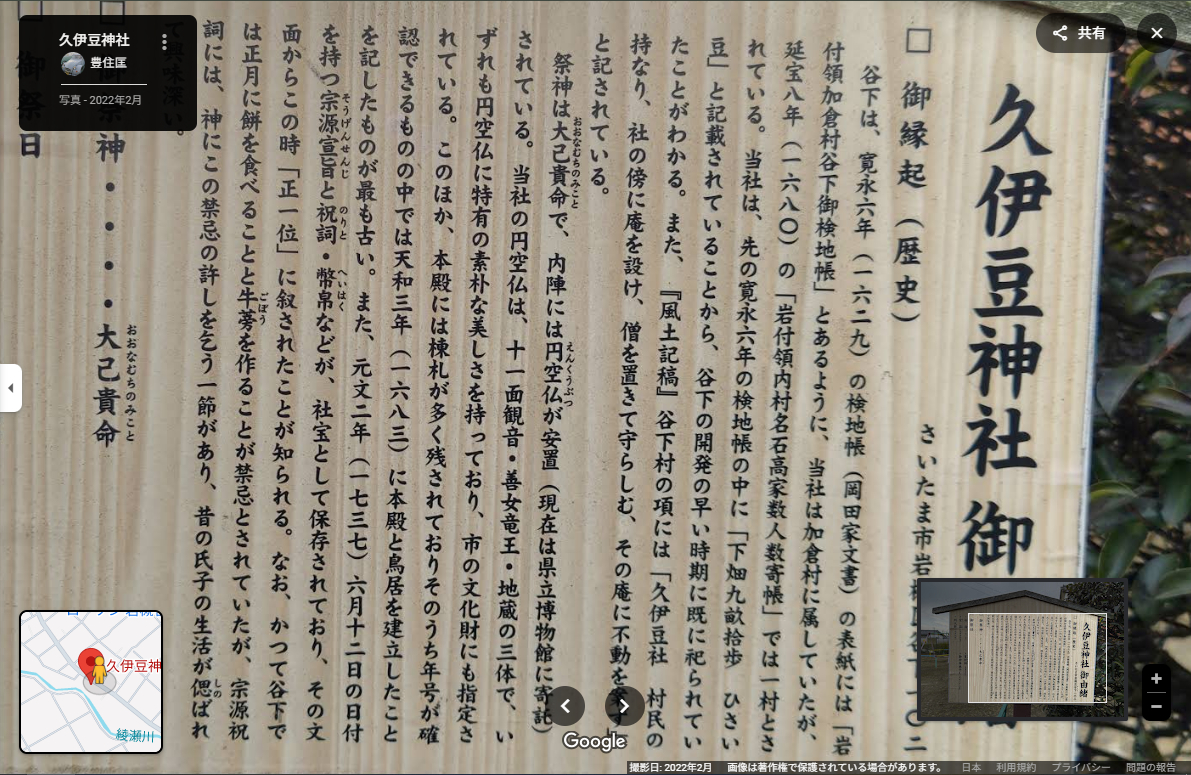 久伊豆神社 御
さいたま市岩
〇二
□ 御縁起（歴史）
谷下は、寛永六年（一六二九）の検地帳（岡田家文書）の表紙には「岩
付領加倉村谷下御検地帳」とあるように、当社は加倉村に属していたが、
延宝八年（一六八〇）の「岩付領内村名石高家数人数寄帳」では一村とさ
れている。当社は、先の寛永六年の検地帳の中に「下畑九畝拾歩 ひさい
豆」と記載されていることから、谷下の開発の早い時期に既に祀られてい
たことがわかる。また、『風土記稿』谷下村の項には「久伊豆社 村民の
持なり、社の傍に庵を設け、僧を置きて守らしむ、その庵に不動を
と記されている。
祭神は大己貴命で、内陣には円空仏が安置（現在は県立博物館に寄託）
おおなむちのみこと
えんくうぶつ
されている。当社の円空仏は、十一面観音・善女竜王・地蔵の三体で、い
ずれも円空仏に特有の素朴な美しさを持っており、市の文化財にも指定さ
れている。このほか、本殿には棟札が多く残されておりそのうち年号が確
認できるものの中では天和三年（一六八三）に本殿と鳥居を建立したこと
を記したものが最も古い。また、元文二年（一七三七）六月十二日の日付
を持つ宗源宣旨と祝詞・幣帛などが、社宝として保存されており、その文
そうげんせんじ
のりと
へいはく
面からこの時「正一位」に叙されたことが知られる。なお、かつて谷下で
は正月に餅を食べることと牛蒡を作ることが禁忌とされていたが、宗源祝
ごぼう
詞には、神にこの禁忌の許しを乞う一節があり、昔の氏子の生活が偲ばれ
しの
て興味深い。
御祭神・・・・大己貴命
おおなむちのみこと
御祭日
久伊豆神社
豊住匡
写真 - 2022年2月
共有
久伊豆神
綾瀬川
久伊豆神社 御由緒
Google
撮影日: 2022年2月 画像は著作権で保護されている場合があります。 日本 利用規約 プライバシー 問題の報告